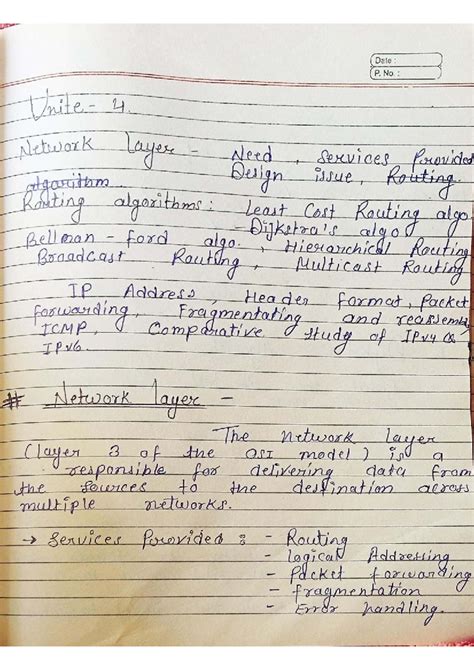 Date :
P. No. :
Unite - 4.
Network Layer Need, Services Provided
Design issue, Routing
algorithm
Routing algorithms : Least Cost Routing algo
- Dijkstra's algo
Bellman - Ford algo., Hierarchical Routing
Broadcast Routing, Multicast Routing
IP Address, Header Format, Packet
forwarding, Fragmentating and reassembl
ICMP, Comparative study of IPv4 &
IPv6
# Network layer -
The network layer
(layer 3 of the OSI model) is a
responsible for delivering data from
the sources to the destination across
multiple networks.
→ Services Provided : - Routing
- Logical Addressing
- Packet forwarding
- fragmentation
- Error handling.